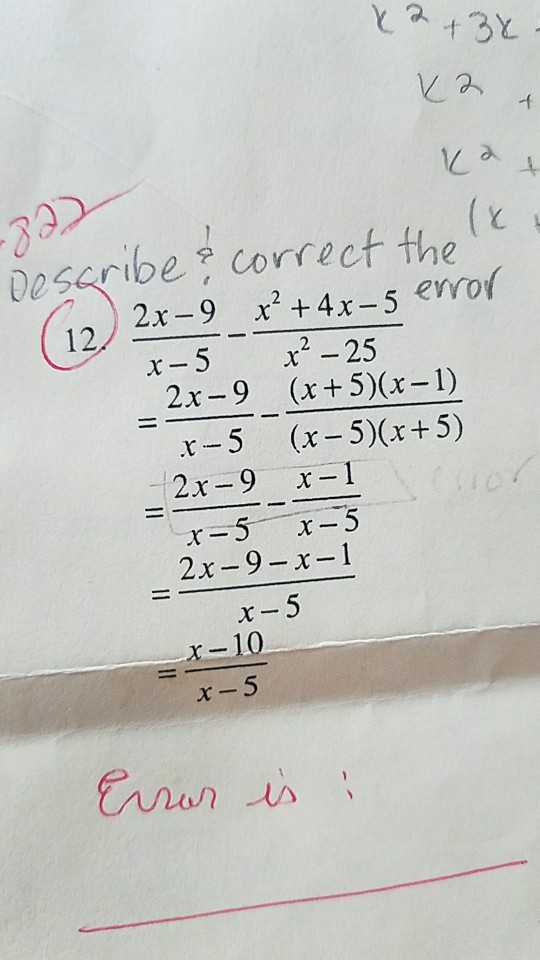 x² + 3x
x² +
x² +
(x
.822
Describe & correct the error
12. (2x − 9)/(x − 5) − (x² + 4x − 5)/(x² − 25)
= (2x − 9)/(x − 5) − ((x + 5)(x − 1))/((x − 5)(x + 5))
= (2x − 9)/(x − 5) − (x − 1)/(x − 5) error
= (2x − 9 − x − 1)/(x − 5)
= (x − 10)/(x − 5)
Error is :